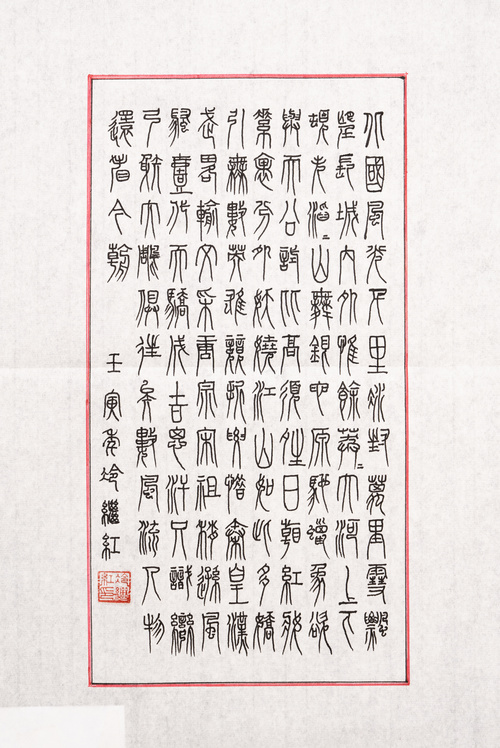 北國風光千里冰封萬里雪飄
望長城內外惟餘莽〻大河上下
頓失滔〻山舞銀蛇原馳蠟象欲
與天公試比高須晴日看紅裝
素裹分外妖嬈江山如此多嬌
引無數英雄競折腰惜秦皇漢
武略輸文采唐宗宋祖稍遜風
騷壹代天驕成吉思汗只識彎
弓射大雕俱往矣數風流人物
還看今朝
壬寅年冷繼紅